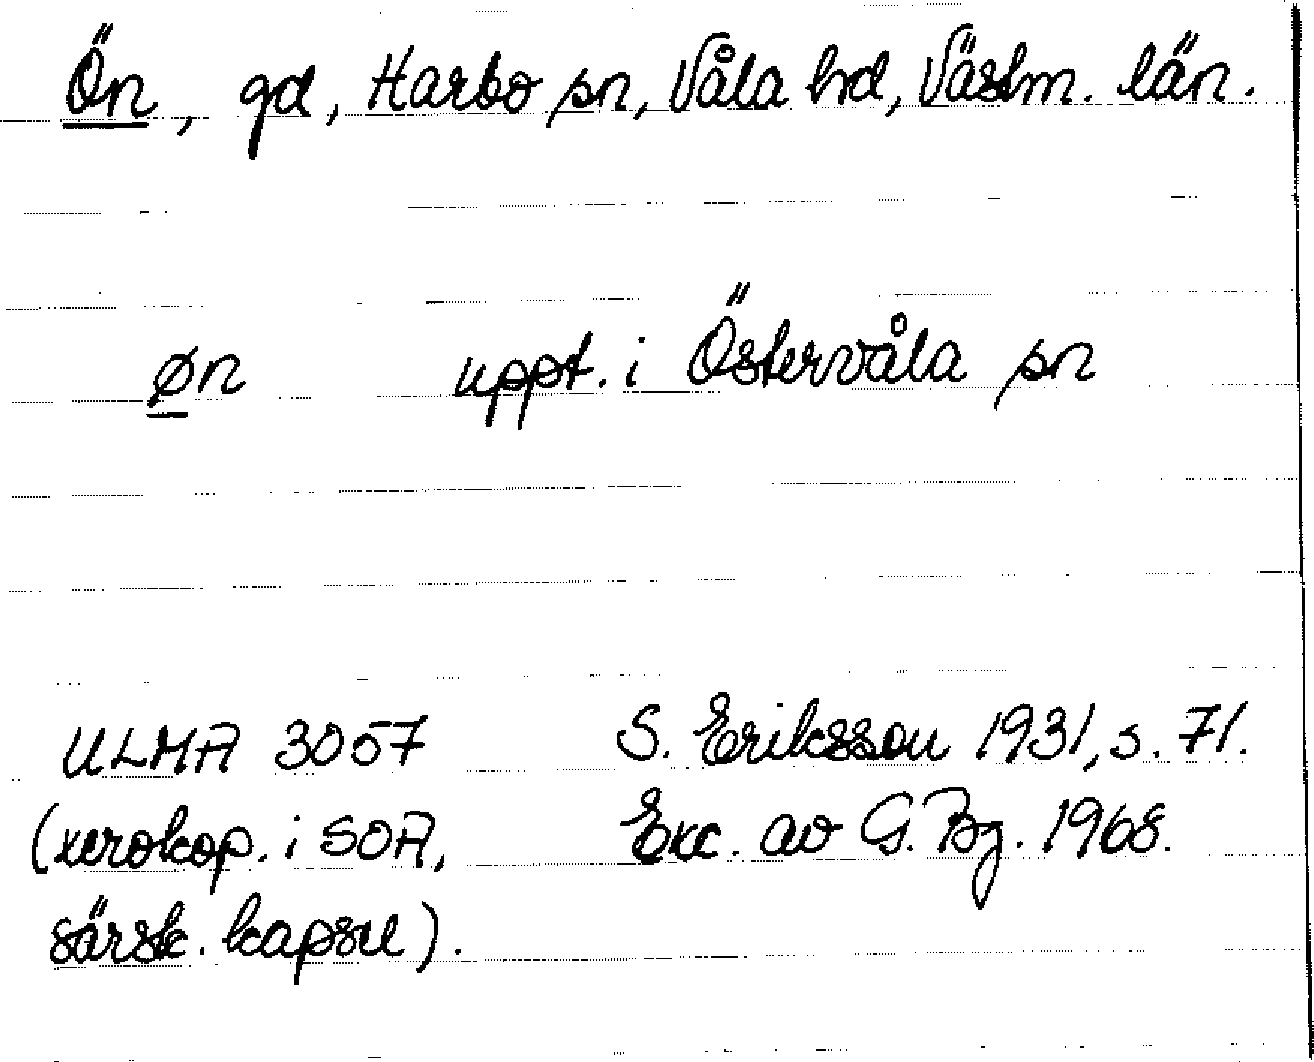 Ön, gd, Harbo sn, Våla hd, Västm. län.
øn uppt. i Östervåla sn
ULMA 3057 S. Eriksson 1931, s. 71.
(xerokop. i SOA, Exc. av G. Bg. 1968.
särsk. kapsel).